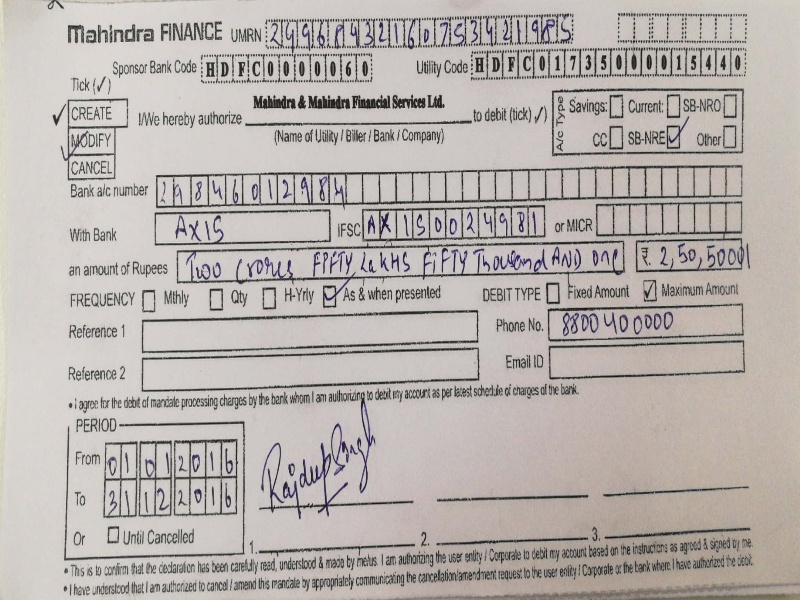 Mahindra FINANCE UMRN 2996843216075342198S
Sponsor Bank Code HDFC0000060 Utility Code HDFC01735000015440
Tick (✓)
CREATE
MODIFY
CANCEL
I/We hereby authorize Mahindra & Mahindra Financial Services Ltd. to debit (tick) ✓)
(Name of Utility / Biller / Bank / Company)
A/c Type Savings: Current: SB-NRO
CC SB-NRE ✓ Other
Bank a/c number 29846012984
With Bank AXIS IFSC AXIS0024981 or MICR
an amount of Rupees Two crores FIFTY LakHS FiFTY Thousand AND one ₹ 2,50,50001
FREQUENCY Mthly Qty H-Yrly ✓ As & when presented DEBIT TYPE Fixed Amount ✓ Maximum Amount
Reference 1 Phone No. 8800400000
Reference 2 Email ID
• I agree for the debit of mandate processing charges by the bank whom I am authorizing to debit my account as per latest schedule of charges of the bank.
PERIOD
From 01 01 2016
To 31 12 2016
Or Until Cancelled
Rajdeep Singh
1. 2. 3.
• This is to confirm that the declaration has been carefully read, understood & made by me/us. I am authorizing the user entity / Corporate to debit my account based on the instructions as agreed & signed by me.
• I have understood that I am authorized to cancel / amend this mandate by appropriately communicating the cancellation/amendment request to the user entity / Corporate or the bank where I have authorized the debit.